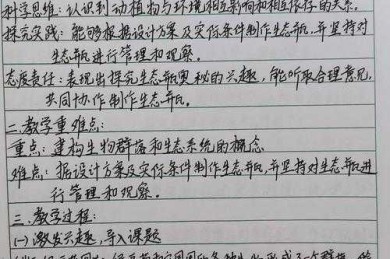 科学思维：认识到动植物与环境相互影响和相互依存的关系。
探究实践：能够根据设计方案及实际条件制作生态瓶，并坚持对
生态瓶进行管理和观察。
态度责任：表现出探究生态瓶奥秘的兴趣，能听取合理意见，
共同协作制作生态瓶。
二、教学重难点：
重点：建构生物群落和生态系统的概念
难点：据设计方案及实际条件制作生态瓶，并坚持对生态瓶进
行管理和观察。
三、教学过程：
(一)激发兴趣，导入课题